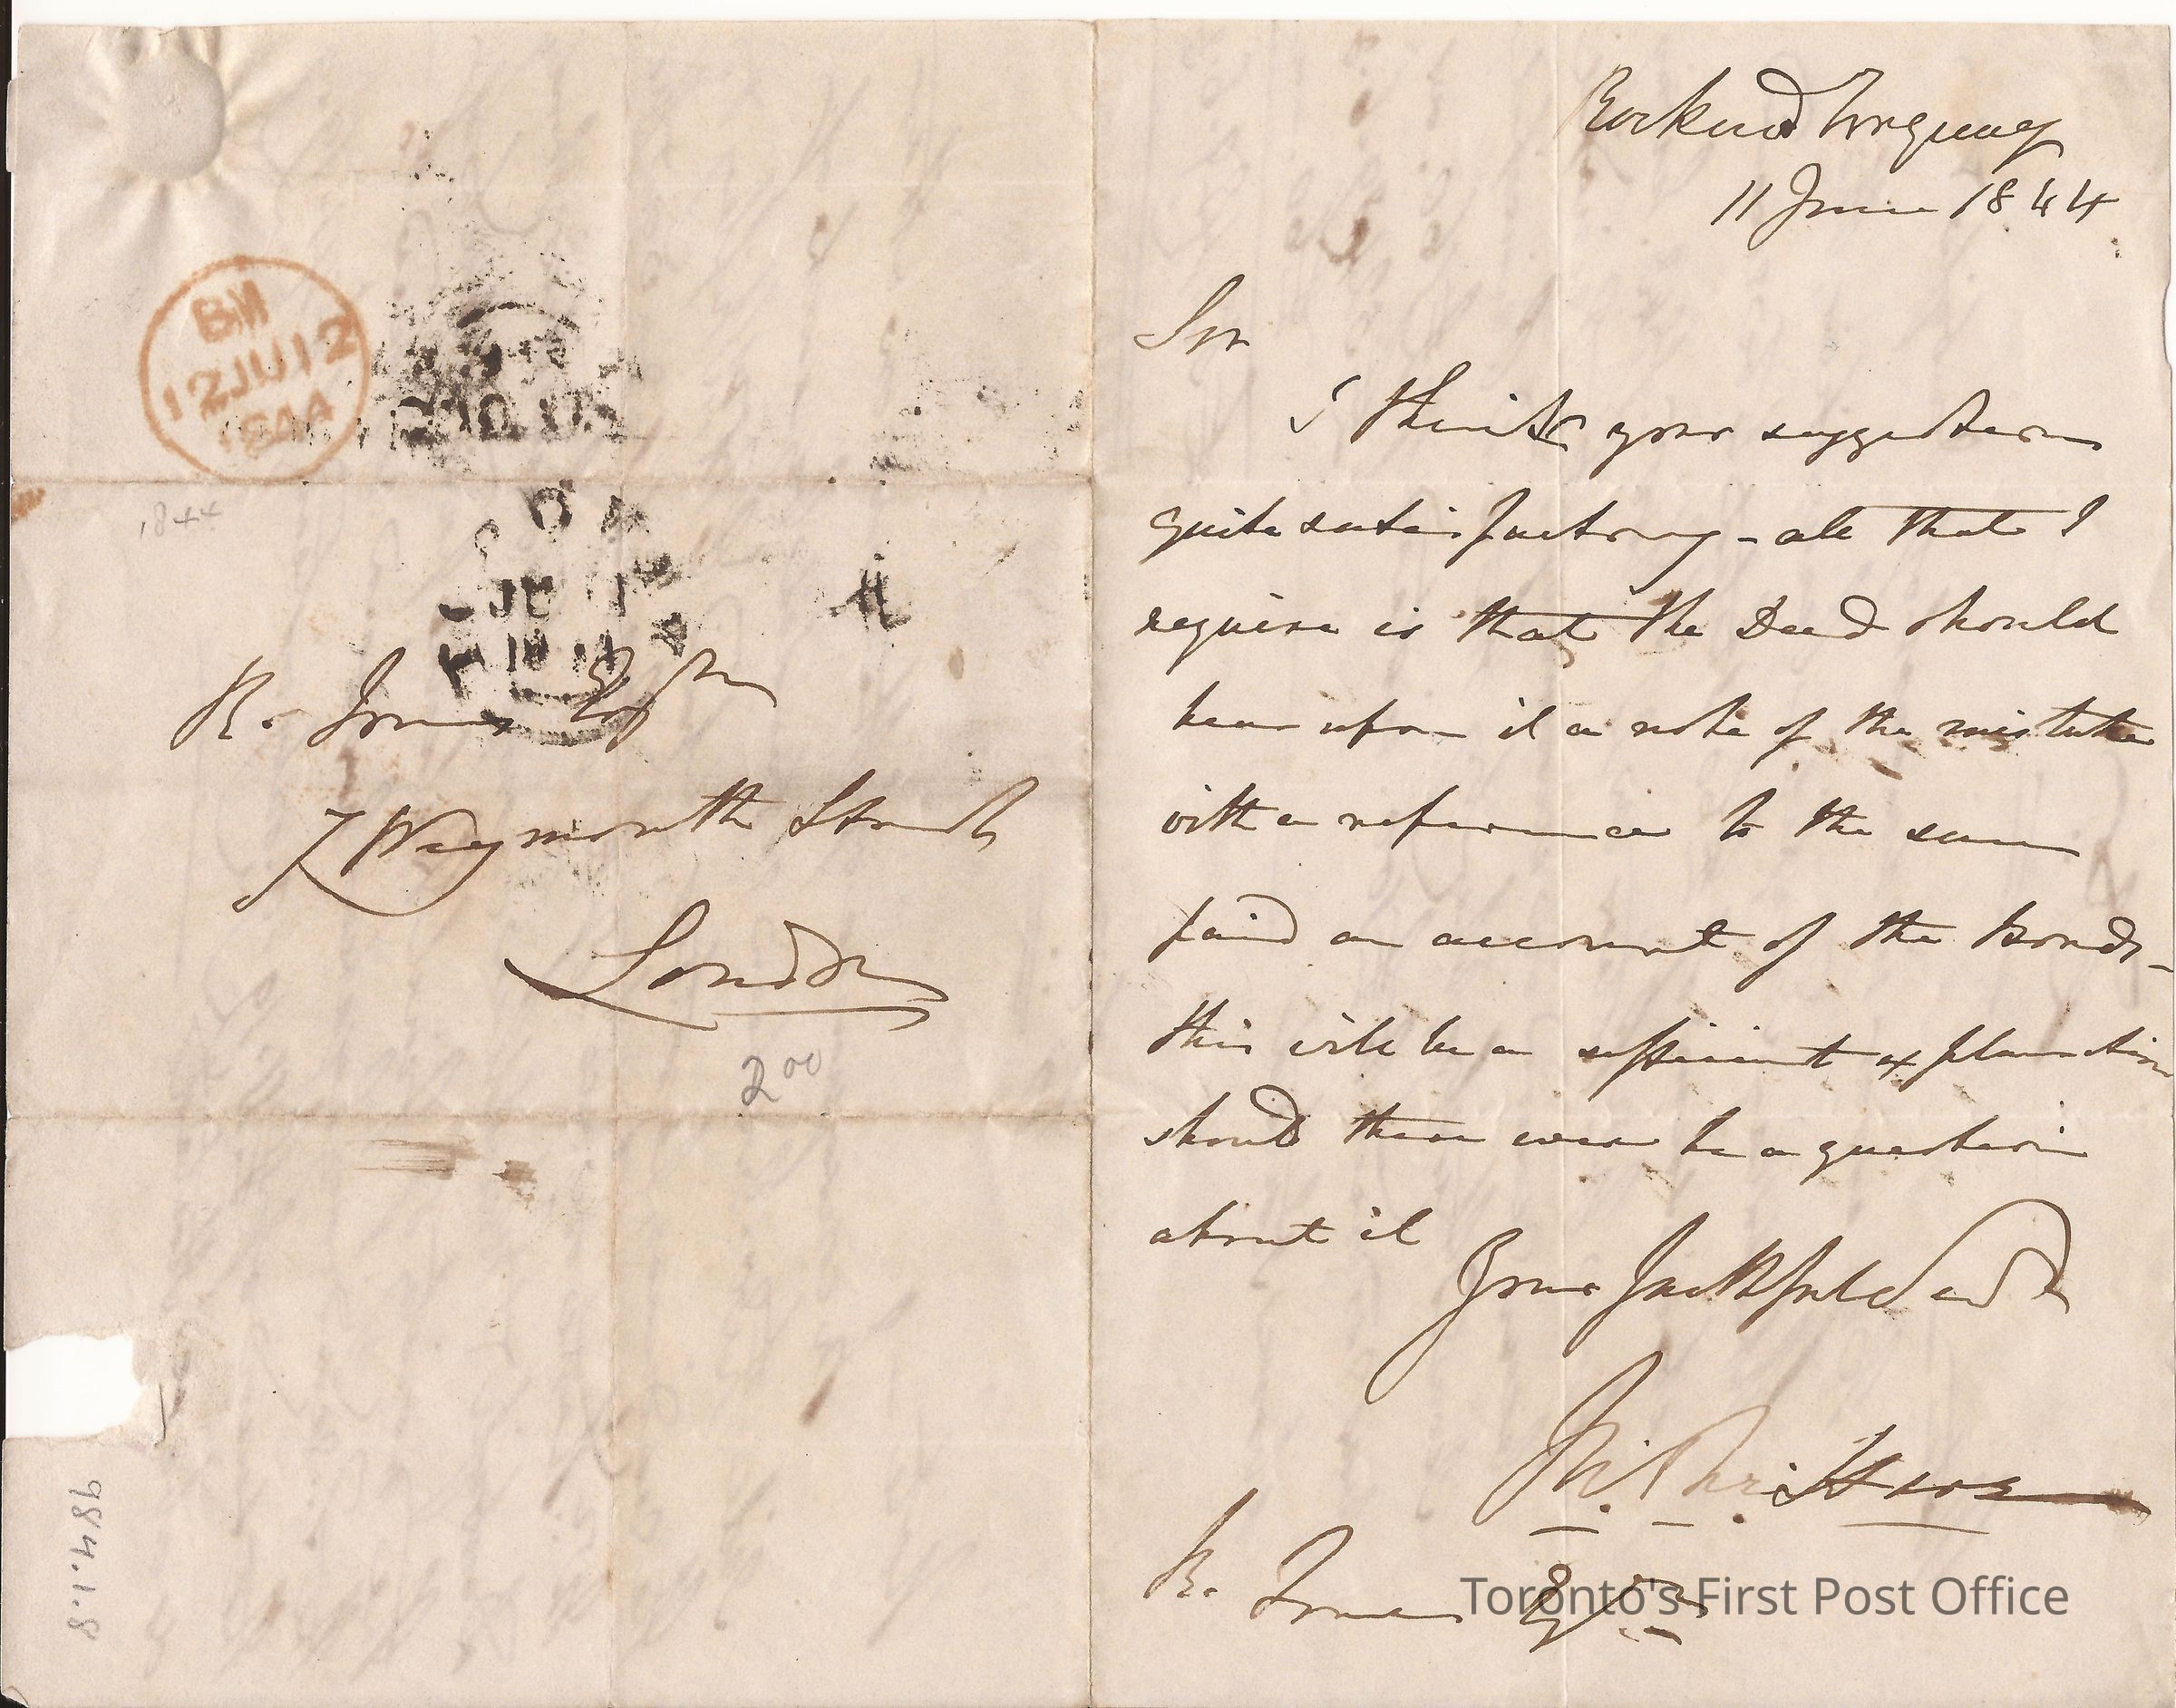 BH
12 JU 12
1844
1844
JU 1
1844
R. Jones Esqre
7 Weymouth Street
London
2 00
984.1.8
Rockend Torquay
11 June 1844
Sir
I think your suggestion
quite satisfactory - all that I
require is that the Deed should
bear upon it a note of the mistake
with a reference to the sum
paid on account of the Bonds -
this will be a sufficient explanation
should there ever be a question
about it
Your faithful Servt
R. Jones Esqre
Toronto's First Post Office